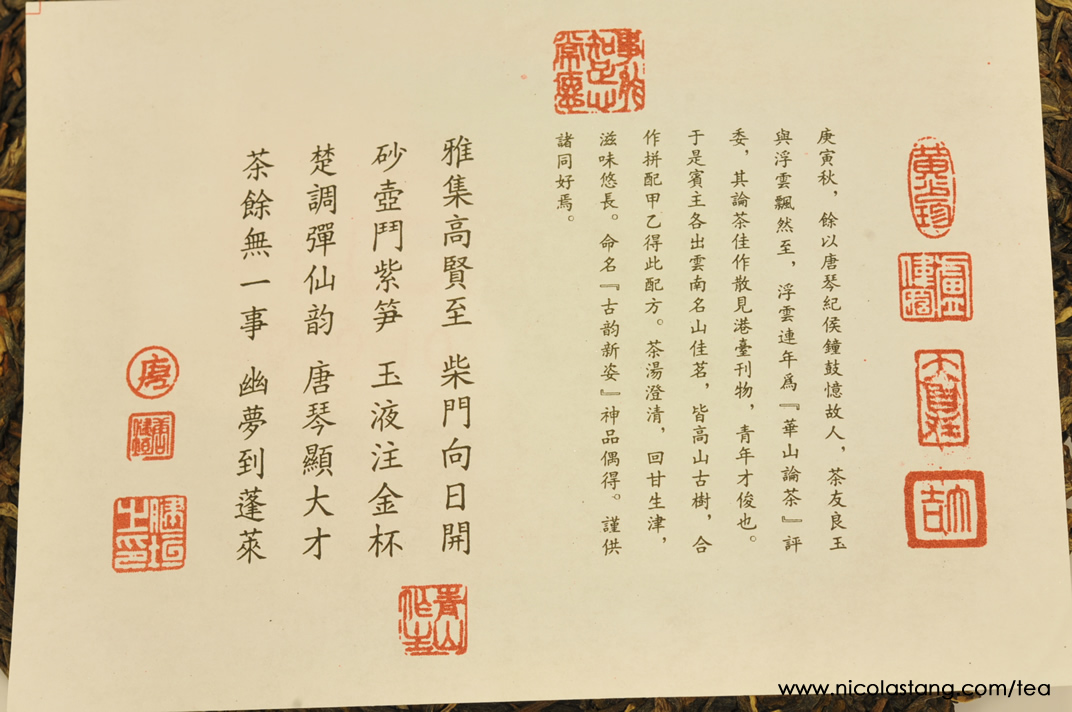 庚寅秋，餘以唐琴紀侯鐘鼓憶故人，茶友良玉
與浮雲飄然至，浮雲連年爲『華山論茶』評
委，其論茶佳作散見港臺刊物，青年才俊也。
于是賓主各出雲南名山佳茗，皆高山古樹，合
作拼配甲乙得此配方。茶湯澄清，回甘生津，
滋味悠長。命名『古韵新姿』神品偶得。謹供
諸同好焉。
雅集高賢至 柴門向日開
砂壺鬥紫笋 玉液注金杯
楚調彈仙韵 唐琴顯大才
茶餘無一事 幽夢到蓬萊
青山作主
www.nicolastang.com/tea